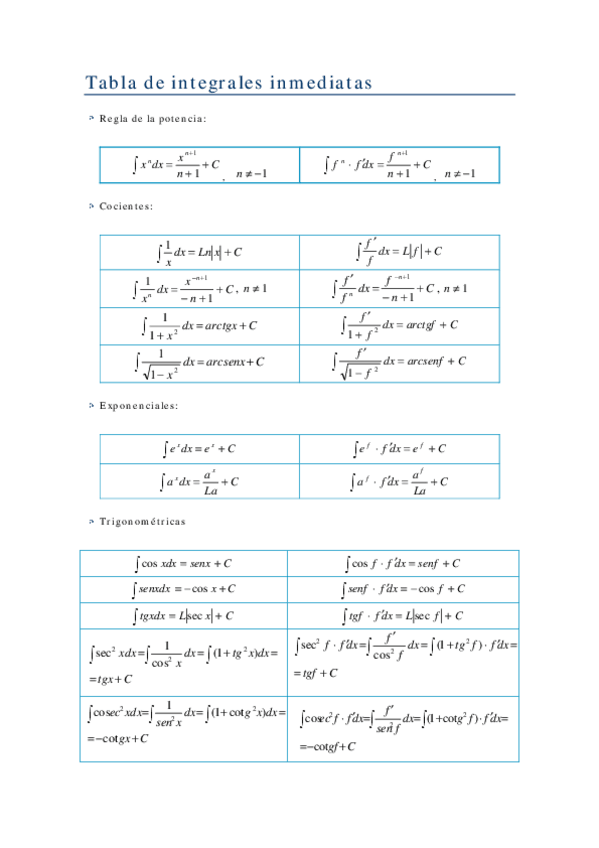 Tabla de integrales inmediatas
Regla de la potencia:
∫xⁿdx = xⁿ⁺¹/(n+1) + C , n ≠ −1
∫fⁿ · f′dx = fⁿ⁺¹/(n+1) + C , n ≠ −1
Cocientes:
∫1/x dx = Ln|x| + C
∫f′/f dx = L|f| + C
∫1/xⁿ dx = x⁻ⁿ⁺¹/(−n+1) + C , n ≠ 1
∫f′/fⁿ dx = f⁻ⁿ⁺¹/(−n+1) + C , n ≠ 1
∫1/(1+x²) dx = arctgx + C
∫f′/(1+f²) dx = arctgf + C
∫1/√(1−x²) dx = arcsenx + C
∫f′/√(1−f²) dx = arcsenf + C
Exponenciales:
∫eˣdx = eˣ + C
∫e^f · f′dx = e^f + C
∫aˣdx = aˣ/La + C
∫a^f · f′dx = a^f/La + C
Trigonométricas
∫cos xdx = senx + C
∫cos f · f′dx = senf + C
∫senxdx = −cos x + C
∫senf · f′dx = −cos f + C
∫tgxdx = L|sec x| + C
∫tgf · f′dx = L|sec f| + C
∫sec² xdx = ∫1/cos² x dx = ∫(1+tg²x)dx =
= tgx + C
∫sec² f · f′dx = ∫f′/cos² f dx = ∫(1+tg²f) · f′dx =
= tgf + C
∫cosec²xdx = ∫1/sen²x dx = ∫(1+cotg²x)dx =
= −cotgx + C
∫cosec²f · f′dx = ∫f′/sen²f dx = ∫(1+cotg²f) · f′dx =
= −cotgf + C